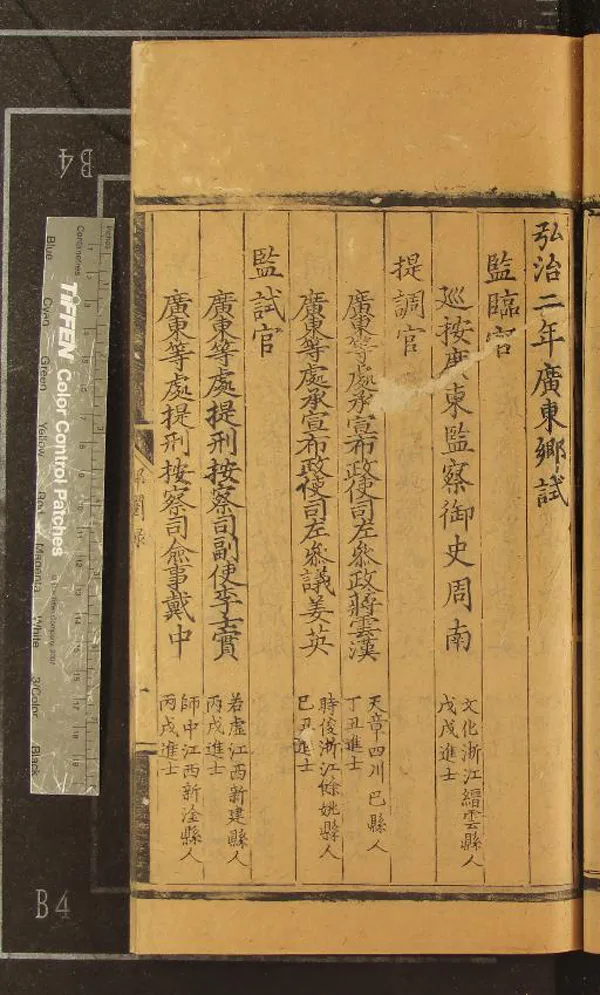 弘治二年廣東鄉試
監臨官
巡按廣東監察御史周南
文化浙江縉雲縣人
戊戌進士
提調官
廣東等處承宣布政使司左參政蔣雲漢
天章四川巴縣人
丁丑進士
廣東等處承宣布政使司左參議姜英
時俊浙江餘姚縣人
己丑進士
監試官
廣東等處提刑按察司副使李士實
若虛江西新建縣人
丙戌進士
廣東等處提刑按察司僉事戴中
師中江西新淦縣人
丙戌進士
B4
B4
Inches
Centimetres
TIFFEN Color Control Patches
© The Tiffen Company, 2007
Blue
Cyan
Green
Yellow
Red
Magenta
White
3/Color
Black